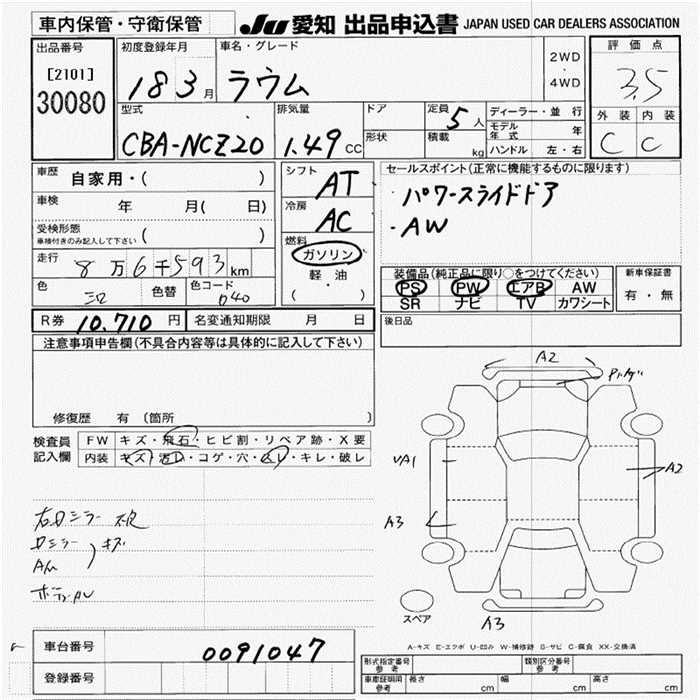 車内保管・守衛保管
JU 愛知 出品申込書 JAPAN USED CAR DEALERS ASSOCIATION
出品番号
[2101]
30080
初度登録年月
18 3 月
車名・グレード
ラウム
2WD
・
4WD
評価点
3.5
外装 内装
C C
型式
CBA-NCZ20
排気量
1.49 CC
ドア
形状
定員
5 人
積載
kg
ディーラー・並 行
モデル年式 年
ハンドル 左・右
車歴
自家用・( )
車検
年 月( 日)
受検形態
車検付きのみ記入して下さい ( )
走行
8万6千593km
色 色替 色コード
040
シフト
AT
冷房
AC
燃料
ガソリン
軽・油
( )
セールスポイント(正常に機能するものに限ります)
パワースライドドア
・AW
装備品(純正品に限り○をつけてください)
PS PW エアB AW
SR ナビ TV カワシート
新車保証書
有・無
R券 10,710 円 名変通知期限 月 日
後日品
注意事項申告欄(不具合内容等は具体的に記入して下さい)
修復歴 有 (箇所 )
検査員記入欄
FW キズ・飛石・ヒビ割・リペア跡・X要
内装 キズ・汚レ・コゲ・穴・ムレ・キレ・破レ
右ロミラー
ロミラー キズ
AW
A2
A1
A2
A3
A3
スペア
A-キズ E-エクボ U-凹み W-補修跡 S-サビ C-腐食 XX-交換済
車台番号
0091047
登録番号
形式指定番号
参考
類別区分番号
参考
車庫証明用
参考
長さ cm 幅 cm 高さ cm